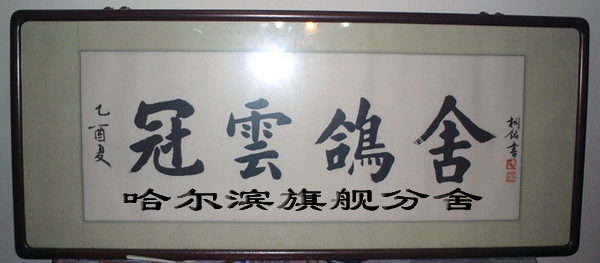 乙酉夏
冠雲鴿舍
桐銘書
哈尔滨旗舰分舍